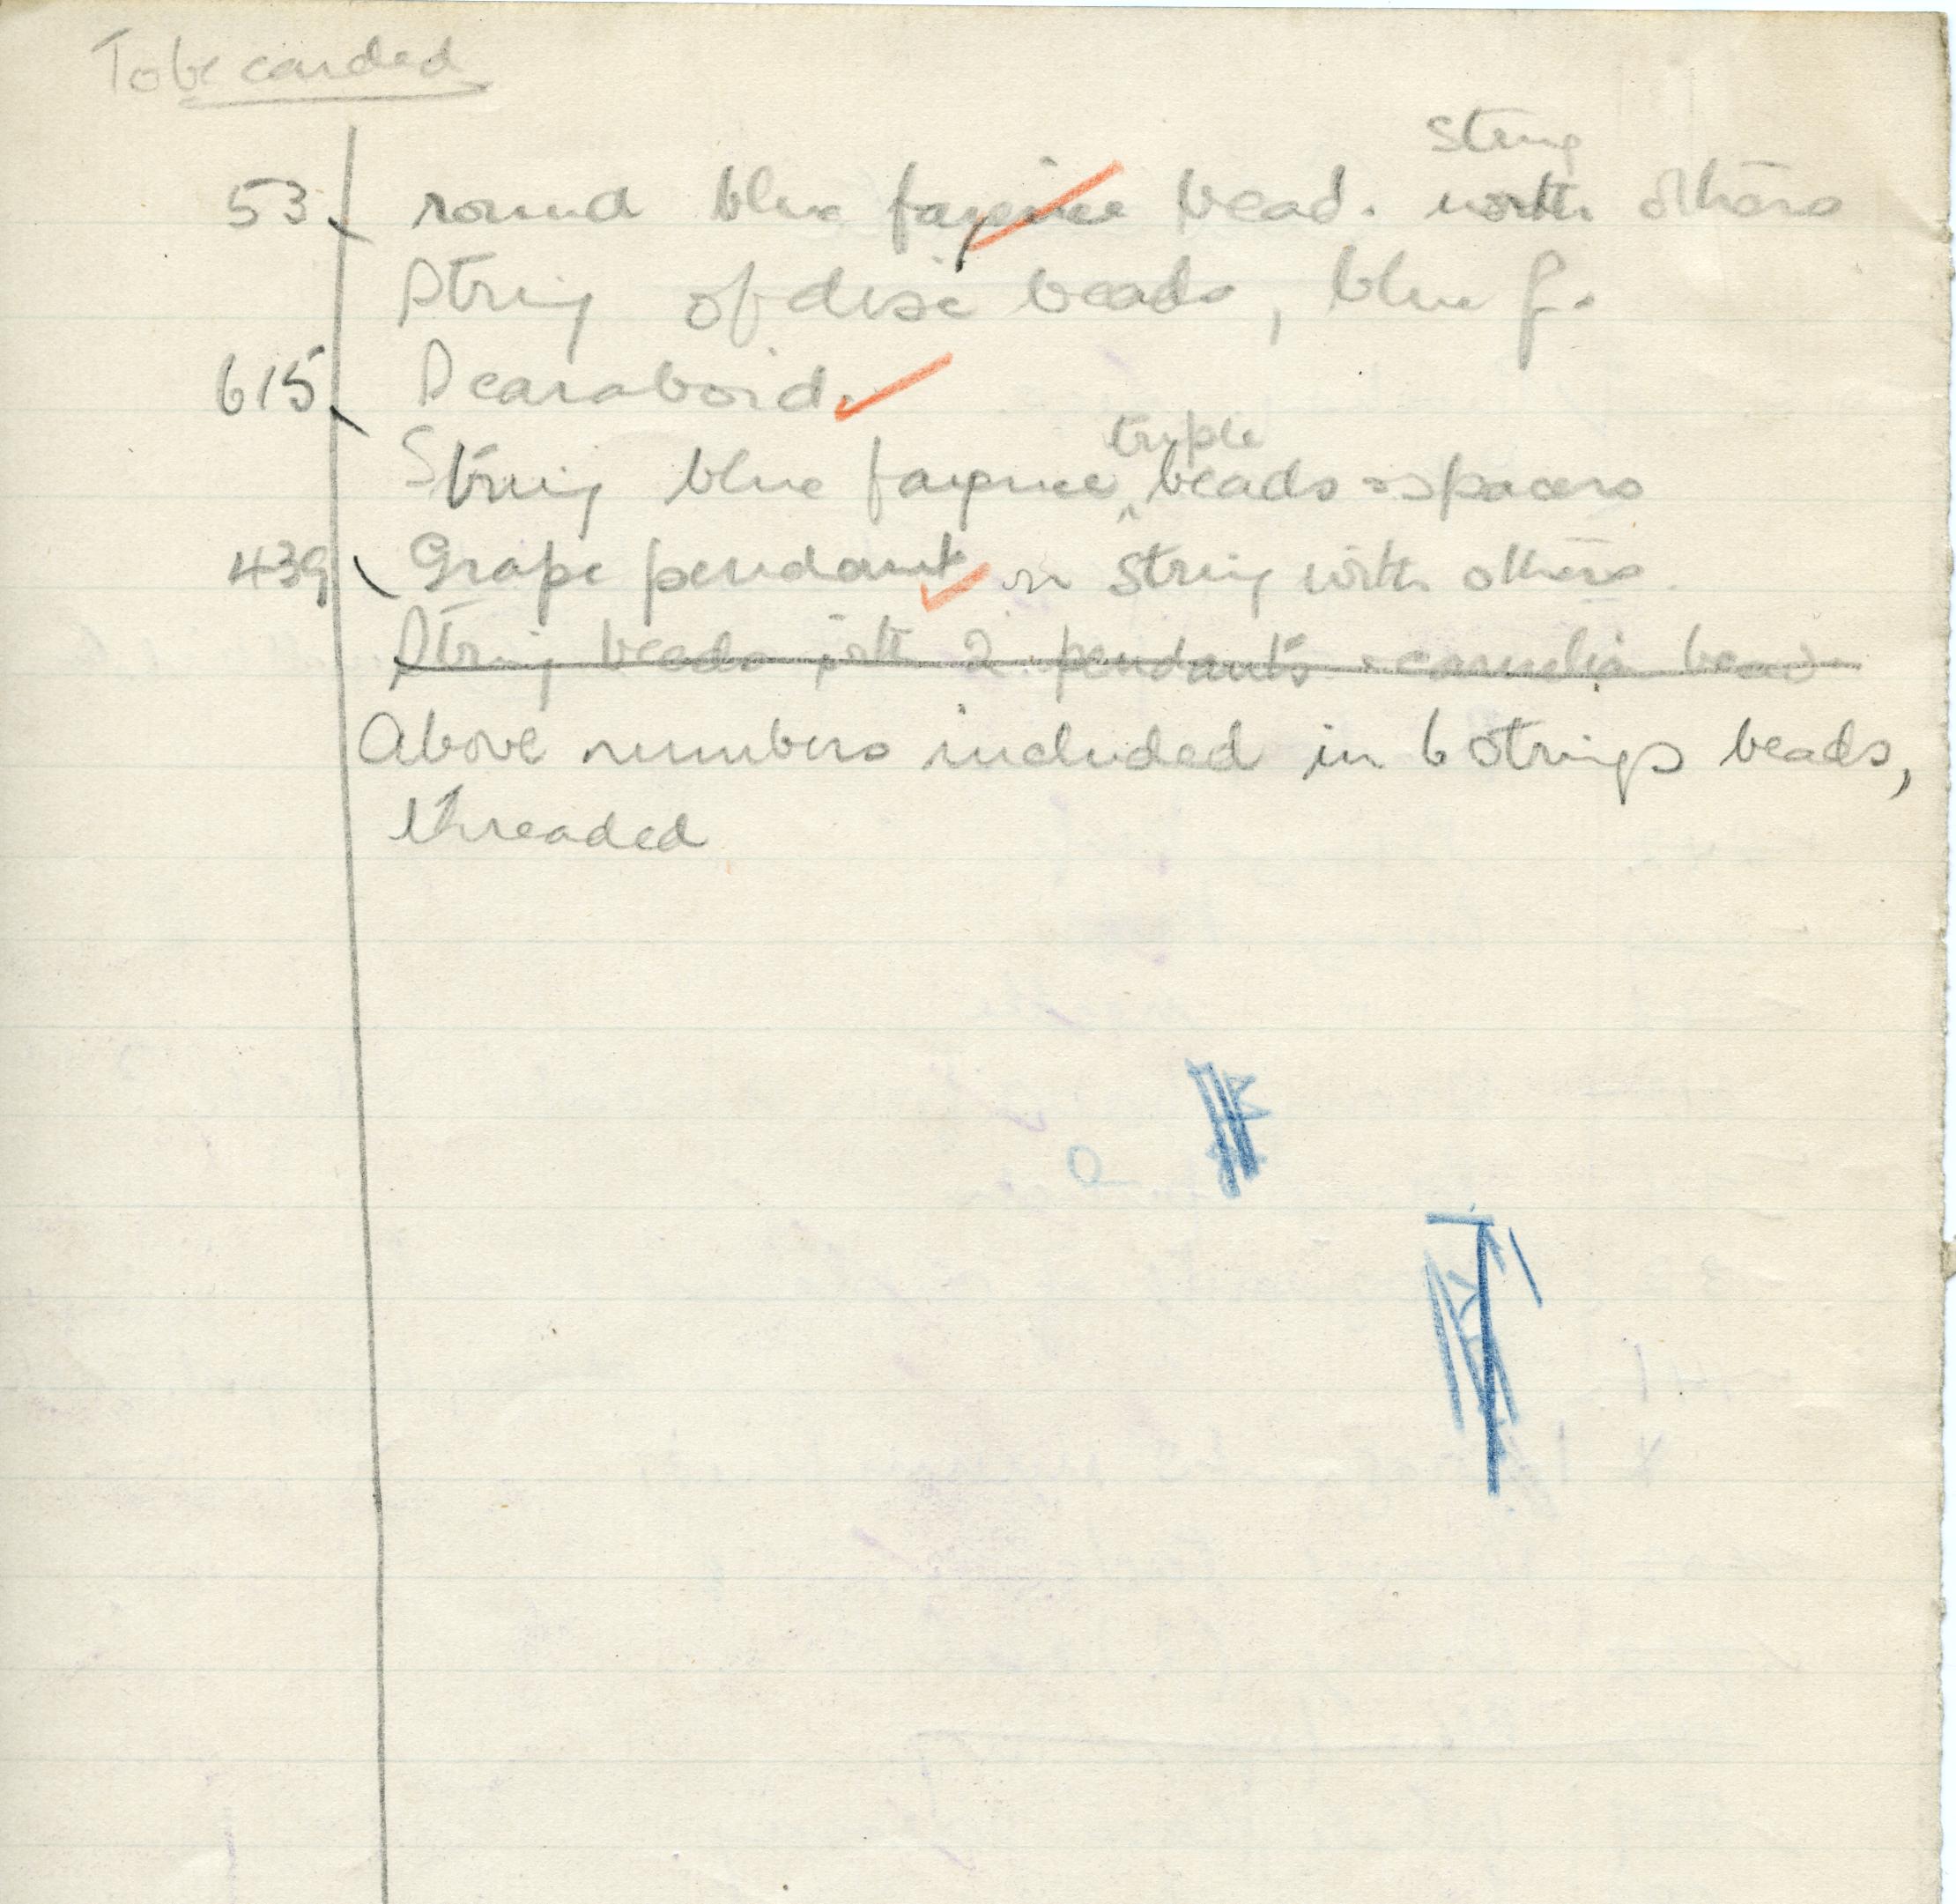 To be carded
string
53 round blue fayence bead. with others
String of disc beads, blue f.
615 Scaraboid.
triple
String blue fayence beads + spacers
439 Grape pendant on string with others.
String beads with 2 pendants + carnelian bead
Above numbers included in 6 strings beads,
threaded